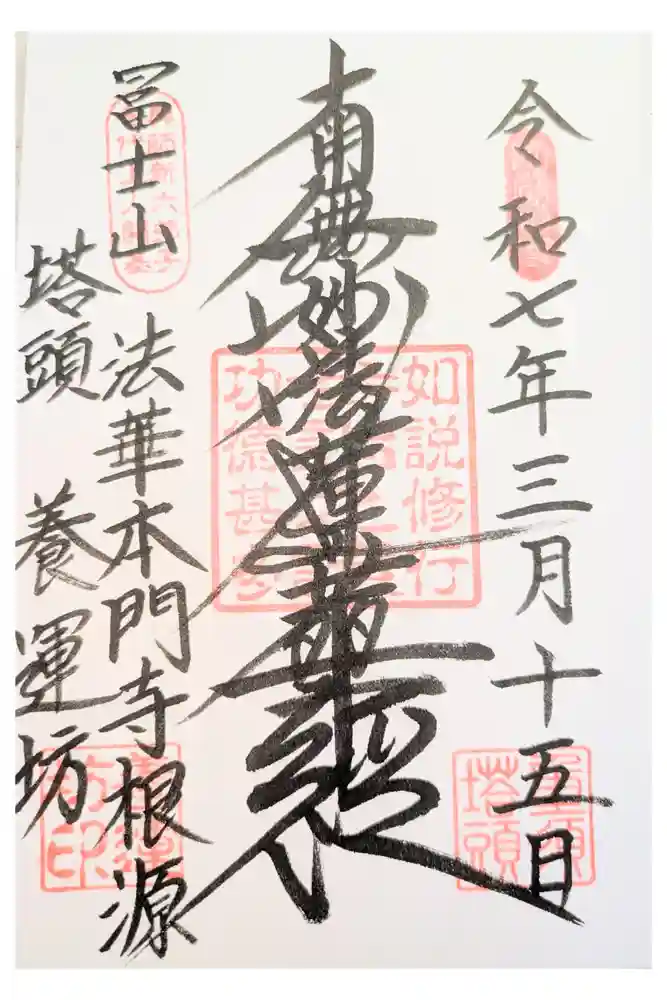 令和七年三月十五日
南無妙法蓮華経
如説修行
功徳甚多
冨士山
法華本門寺根源
塔頭 養運坊
塔頭